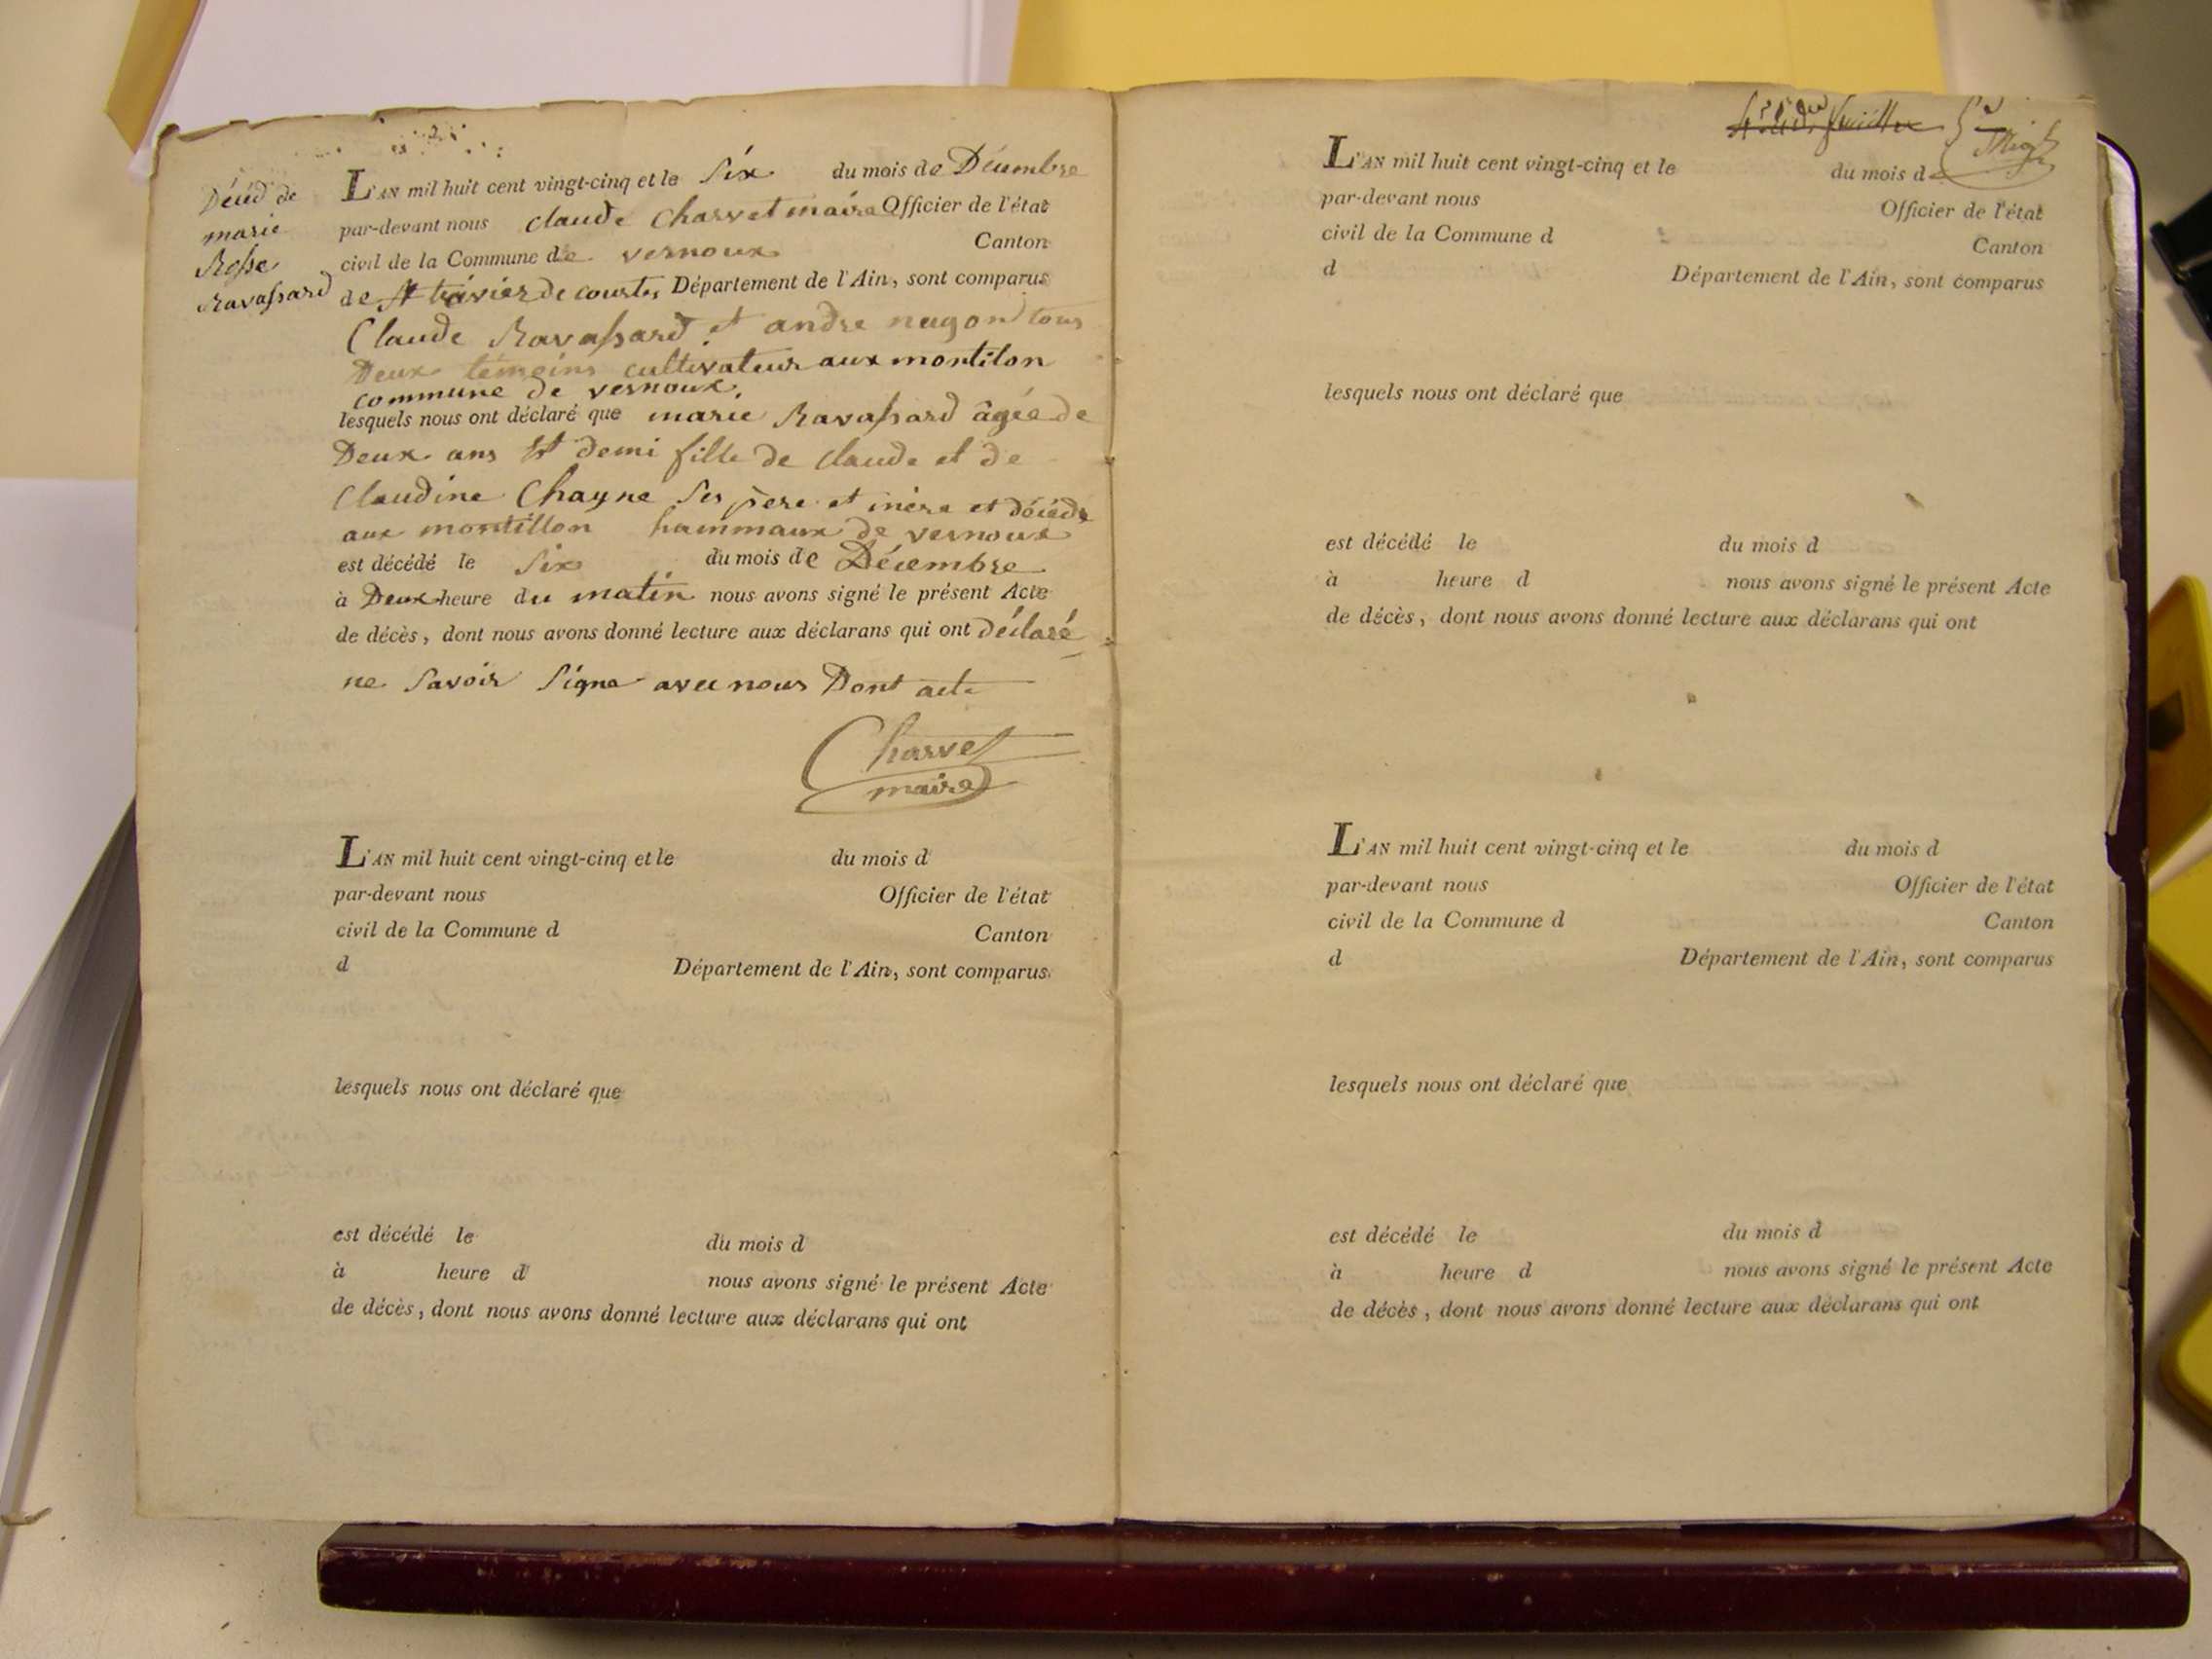 Décéd de
marie
Rosse
Ravassard
L'AN mil huit cent vingt-cinq et le Six du mois de Décembre
par-devant nous claude Charvet maire Officier de l'état
civil de la Commune de vernoux Canton
de St trivier de courtes Département de l'Ain, sont comparus
Claude Ravassard et andre nugon tous
Deux témoins cultivateur aux montilon
commune de vernoux.
lesquels nous ont déclaré que marie Ravassard âgée de
Deux ans et demi fille de claude et de
Claudine Chayne Ses père et mère et décédé
aux montillon hammaux de vernoux
est décédé le Six du mois de Décembre
à Deux heure du matin nous avons signé le présent Acte
de décès, dont nous avons donné lecture aux déclarans qui ont déclaré
ne Savoir Signe avec nous Dont acte
Charvet
maire
L'AN mil huit cent vingt-cinq et le du mois d
par-devant nous Officier de l'état
civil de la Commune d Canton
d Département de l'Ain, sont comparus
lesquels nous ont déclaré que
est décédé le du mois d
à heure d nous avons signé le présent Acte
de décès, dont nous avons donné lecture aux déclarans qui ont
L'AN mil huit cent vingt-cinq et le du mois d
par-devant nous Officier de l'état
civil de la Commune d Canton
d Département de l'Ain, sont comparus
lesquels nous ont déclaré que
est décédé le du mois d
à heure d nous avons signé le présent Acte
de décès, dont nous avons donné lecture aux déclarans qui ont
L'AN mil huit cent vingt-cinq et le du mois d
par-devant nous Officier de l'état
civil de la Commune d Canton
d Département de l'Ain, sont comparus
lesquels nous ont déclaré que
est décédé le du mois d
à heure d nous avons signé le présent Acte
de décès, dont nous avons donné lecture aux déclarans qui ont